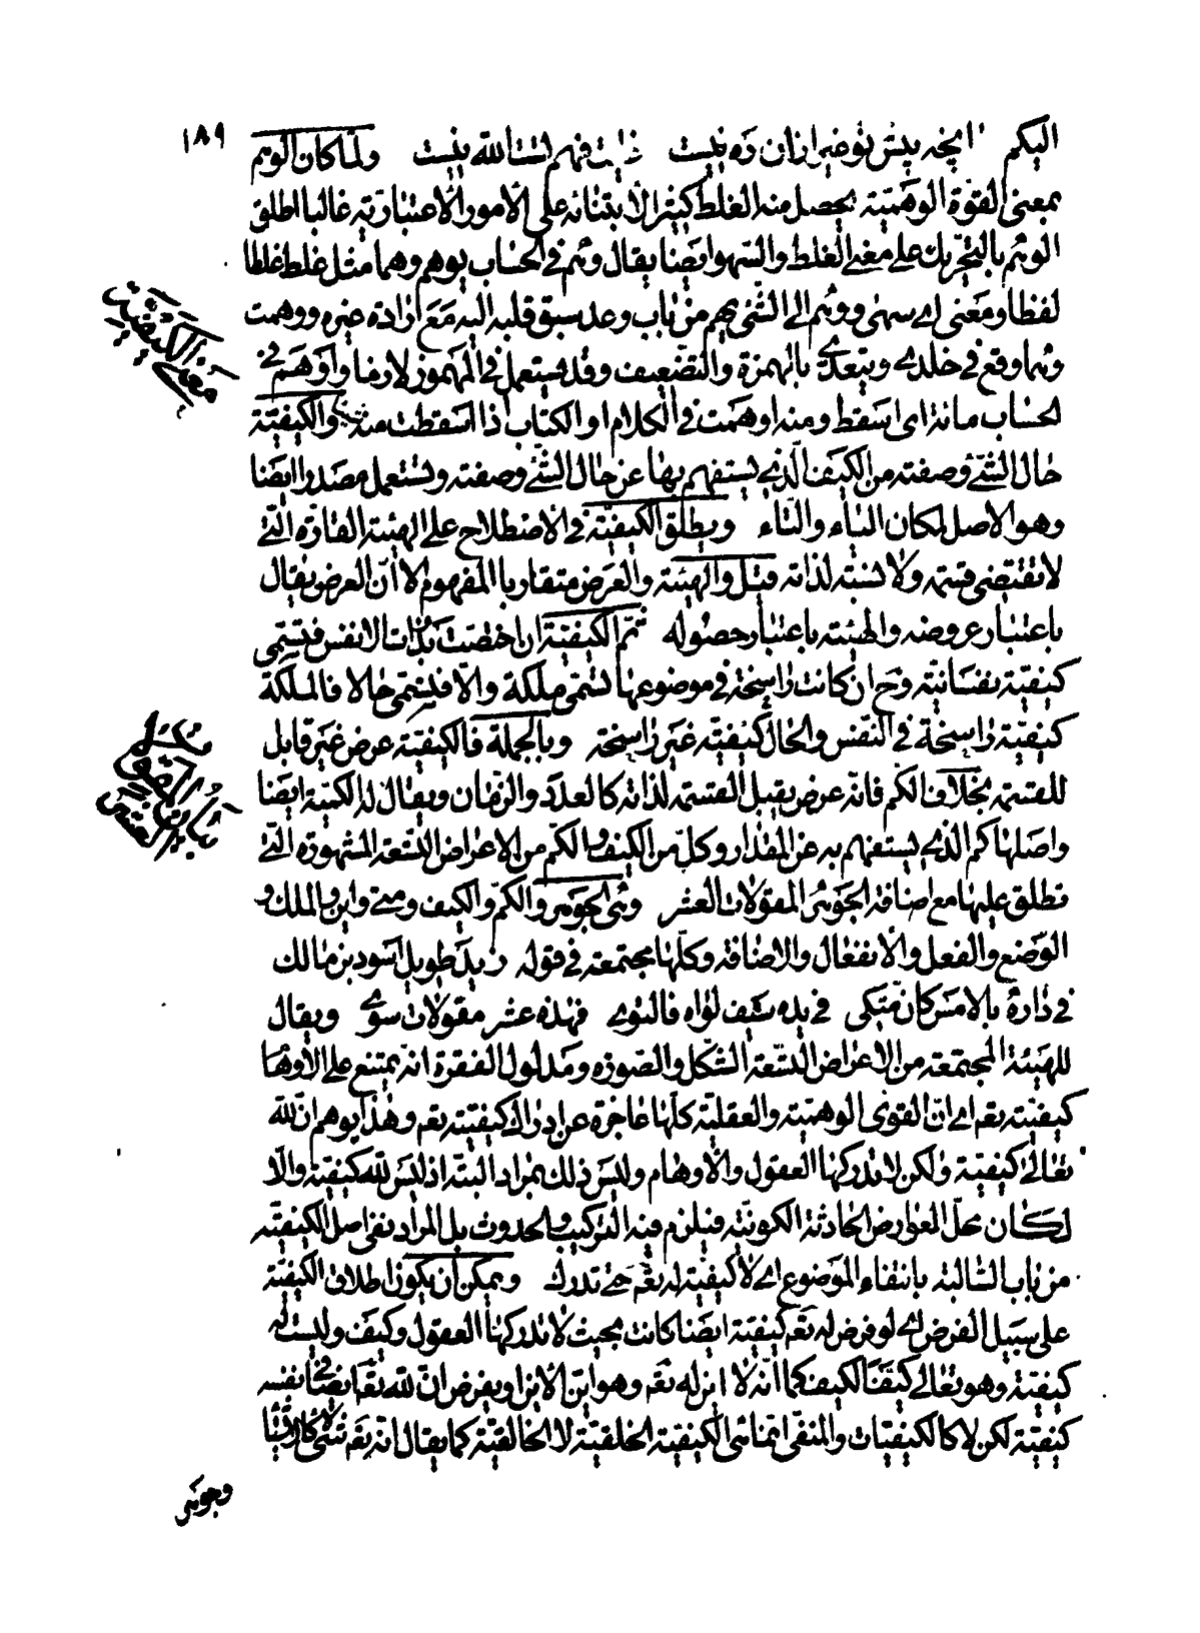 ١٨٩
اليكم آنچه پيش تو غير ازان ره نيست غايت فهم تست الله نيست ولما كان الوهم
بمعنى القوة الوهمية يحصل منه الغلط كثيرا لابتنائه على الأمور الاعتبارية غالبا اطلق
الوهم بالتحريك على معنى الغلط والسهو ايضا يقال وهم في الحساب يوهم وهما مثل غلط غلطا
لفظا ومعنى اى سهى ووهم الى الشئ يهم من باب وعد سبق قلبه اليه مع ارادة غيره ووهمت
وهما وقع في خلدى ويتعدى بالهمزة والتضعيف وقد يستعمل في المهموز لازما واوهم في
الحساب مائة اى اسقط ومنه اوهمت في الكلام او الكتاب اذا اسقطت منه شيئا والكيفية
حال الشئ وصفته من الكيف الذى يستفهم بها عن حال الشئ وصفته وتستعمل مصدرا ايضا
وهو الاصل لمكان الياء والتاء ويطلق الكيفية في الاصطلاح على الهيئة القارة التى
لا تقتضى قسمة ولا نسبة لذاته قيل والهيئة والعرض متقاربا المفهوم الا ان العرض يقال
باعتبار عروضه والهيئة باعتبار حصوله ثم الكيفية ان اختصت بذوات الانفس فتسمى
كيفية نفسانية وح ان كانت راسخة في موضوعها تسمى ملكة والا فتسمى حالا فالملكة
كيفية راسخة في النفس والحال كيفية غير راسخة وبالجملة فالكيفية عرض غير قابل
للقسمة بخلاف الكم فانه عرض يقبل القسمة لذاته كالعدد والزمان ويقال له الكمية ايضا
واصلها كم الذى يستفهم به عن المقدار وكل من الكيف والكم من الاعراض التسعة المشهورة التى
تطلق عليها مع اضافة الجوهر المقولات العشر وهى الجوهر والكم والكيف ومتى واين والملك و
الوضع والفعل والانفعال والاضافة وكلها مجتمعة في قوله زيد طويل اسود بن مالك
في داره بالامس كان متكى في يده سيف لواه فالتوى فهذه عشر مقولات سوى ويقال
للهيئة المجتمعة من الاعراض التسعة الشكل والصورة ومدلول الفقرة انه يمتنع على الاوهام
كيفيته تعم اى ان القوى الوهمية والعقلية كلها عاجزة عن ادراك كيفيته تعم وهذا يوهم ان لله
تعالى كيفية ولكن لا تدركها العقول والاوهام وليس ذلك بمراد البتة اذ ليس لله كيفية والا
لكان محل العوارض الحادثة الكونية فيلزم فيه التركيب والحدوث بل المراد نفى اصل الكيفية
من باب السالبة بانتفاء الموضوع اى لا كيفية له تعم حتى تدرك ويمكن ان يكون اطلاق الكيفية
على سبيل الفرض اى لو فرض له تعم كيفية ايضا كانت بحيث لا تدركها العقول وكيف وليست له
كيفية وهو تعالى كيف الكيف كما انه لا اين له تعم وهو اين الاين او يفرض ان لله تعم ايضا في نفسه
كيفية لكن لا كالكيفيات والمنفى انما هى الكيفية الخلقية لا الخالقية كما يقال انه تعم شئ لا كالاشياء
وجوهر
معنى الكيفية